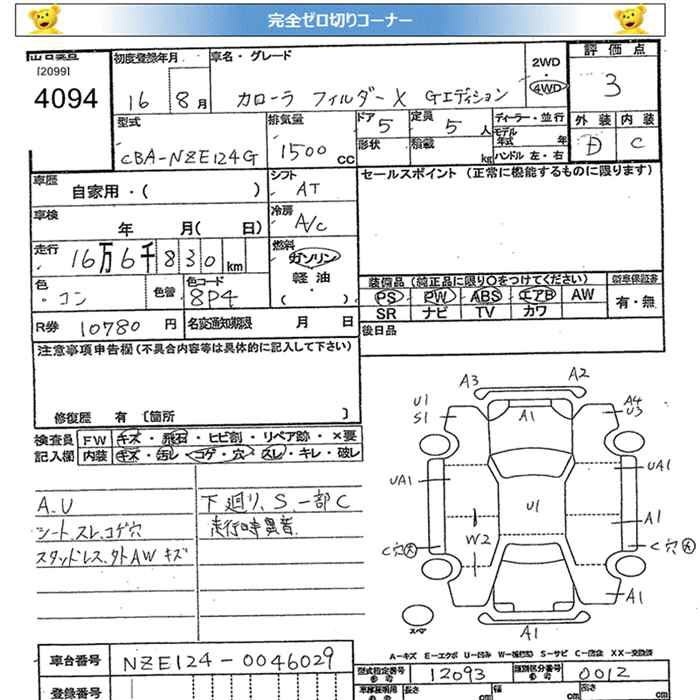 完全ゼロ切りコーナー
[2099]
4094
初度登録年月
16 8月
車名・グレード
カローラ フィルダー X Gエディション
2WD
・
4WD
評価点
3
外装 内装
D C
型式
CBA-NZE124G
排気量
1500 CC
ドア 5
定員 5 人
形状
積載 kg
ディーラー・並行
モデル年式 年
ハンドル 左・右
車歴
自家用・( )
シフト
AT
セールスポイント (正常に機能するものに限ります)
車検
年 月( 日)
冷房
A/C
走行
16万6千830km
燃料
ガソリン
軽油
・( )
色
・コン
色替
色コード
8P4
R券 10780 円
名変通知期限 月 日
装備品(純正品に限り○をつけてください)
PS PW ABS エアB AW
SR ナビ TV カワ
新車保証書
有・無
後日品
注意事項申告欄(不具合内容等は具体的に記入して下さい)
修復歴 有 [箇所 ]
検査員 記入欄
FW キズ・飛石・ヒビ割・リペア跡・×要
内装 キズ・汚レ・コゲ・穴・スレ・キレ・破レ
A.U
シート スレ.コゲ穴
スタッドレス.外AW キズ
下廻り.S 一部C
走行時異音
A3 A2
U1
S1
A1
A4
U3
UA1
UA1
U1
A1
W2
C穴大
C穴大
A1
A1
スペア
A-キズ E-エクボ U-凹み W-補修跡 S-サビ C-腐食 XX-交換済
車台番号
NZE124-0046029
型式指定番号
12093
類別区分番号
0012
登録番号
長さ cm
幅 cm
高さ cm